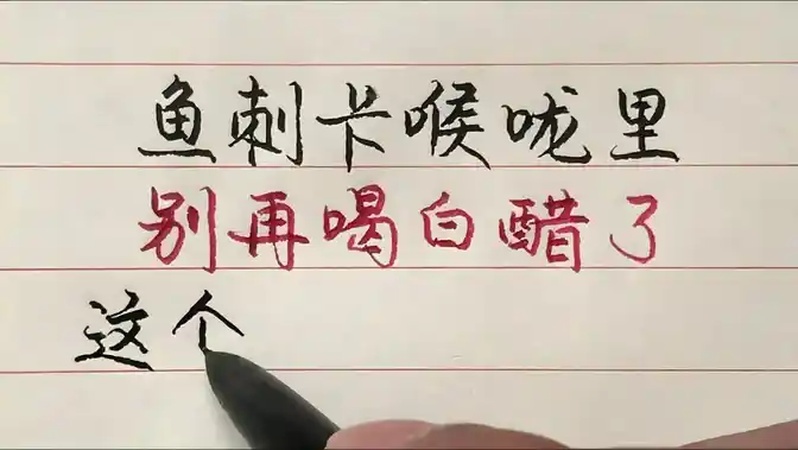 鱼刺卡喉咙里
别再喝白醋了
这个